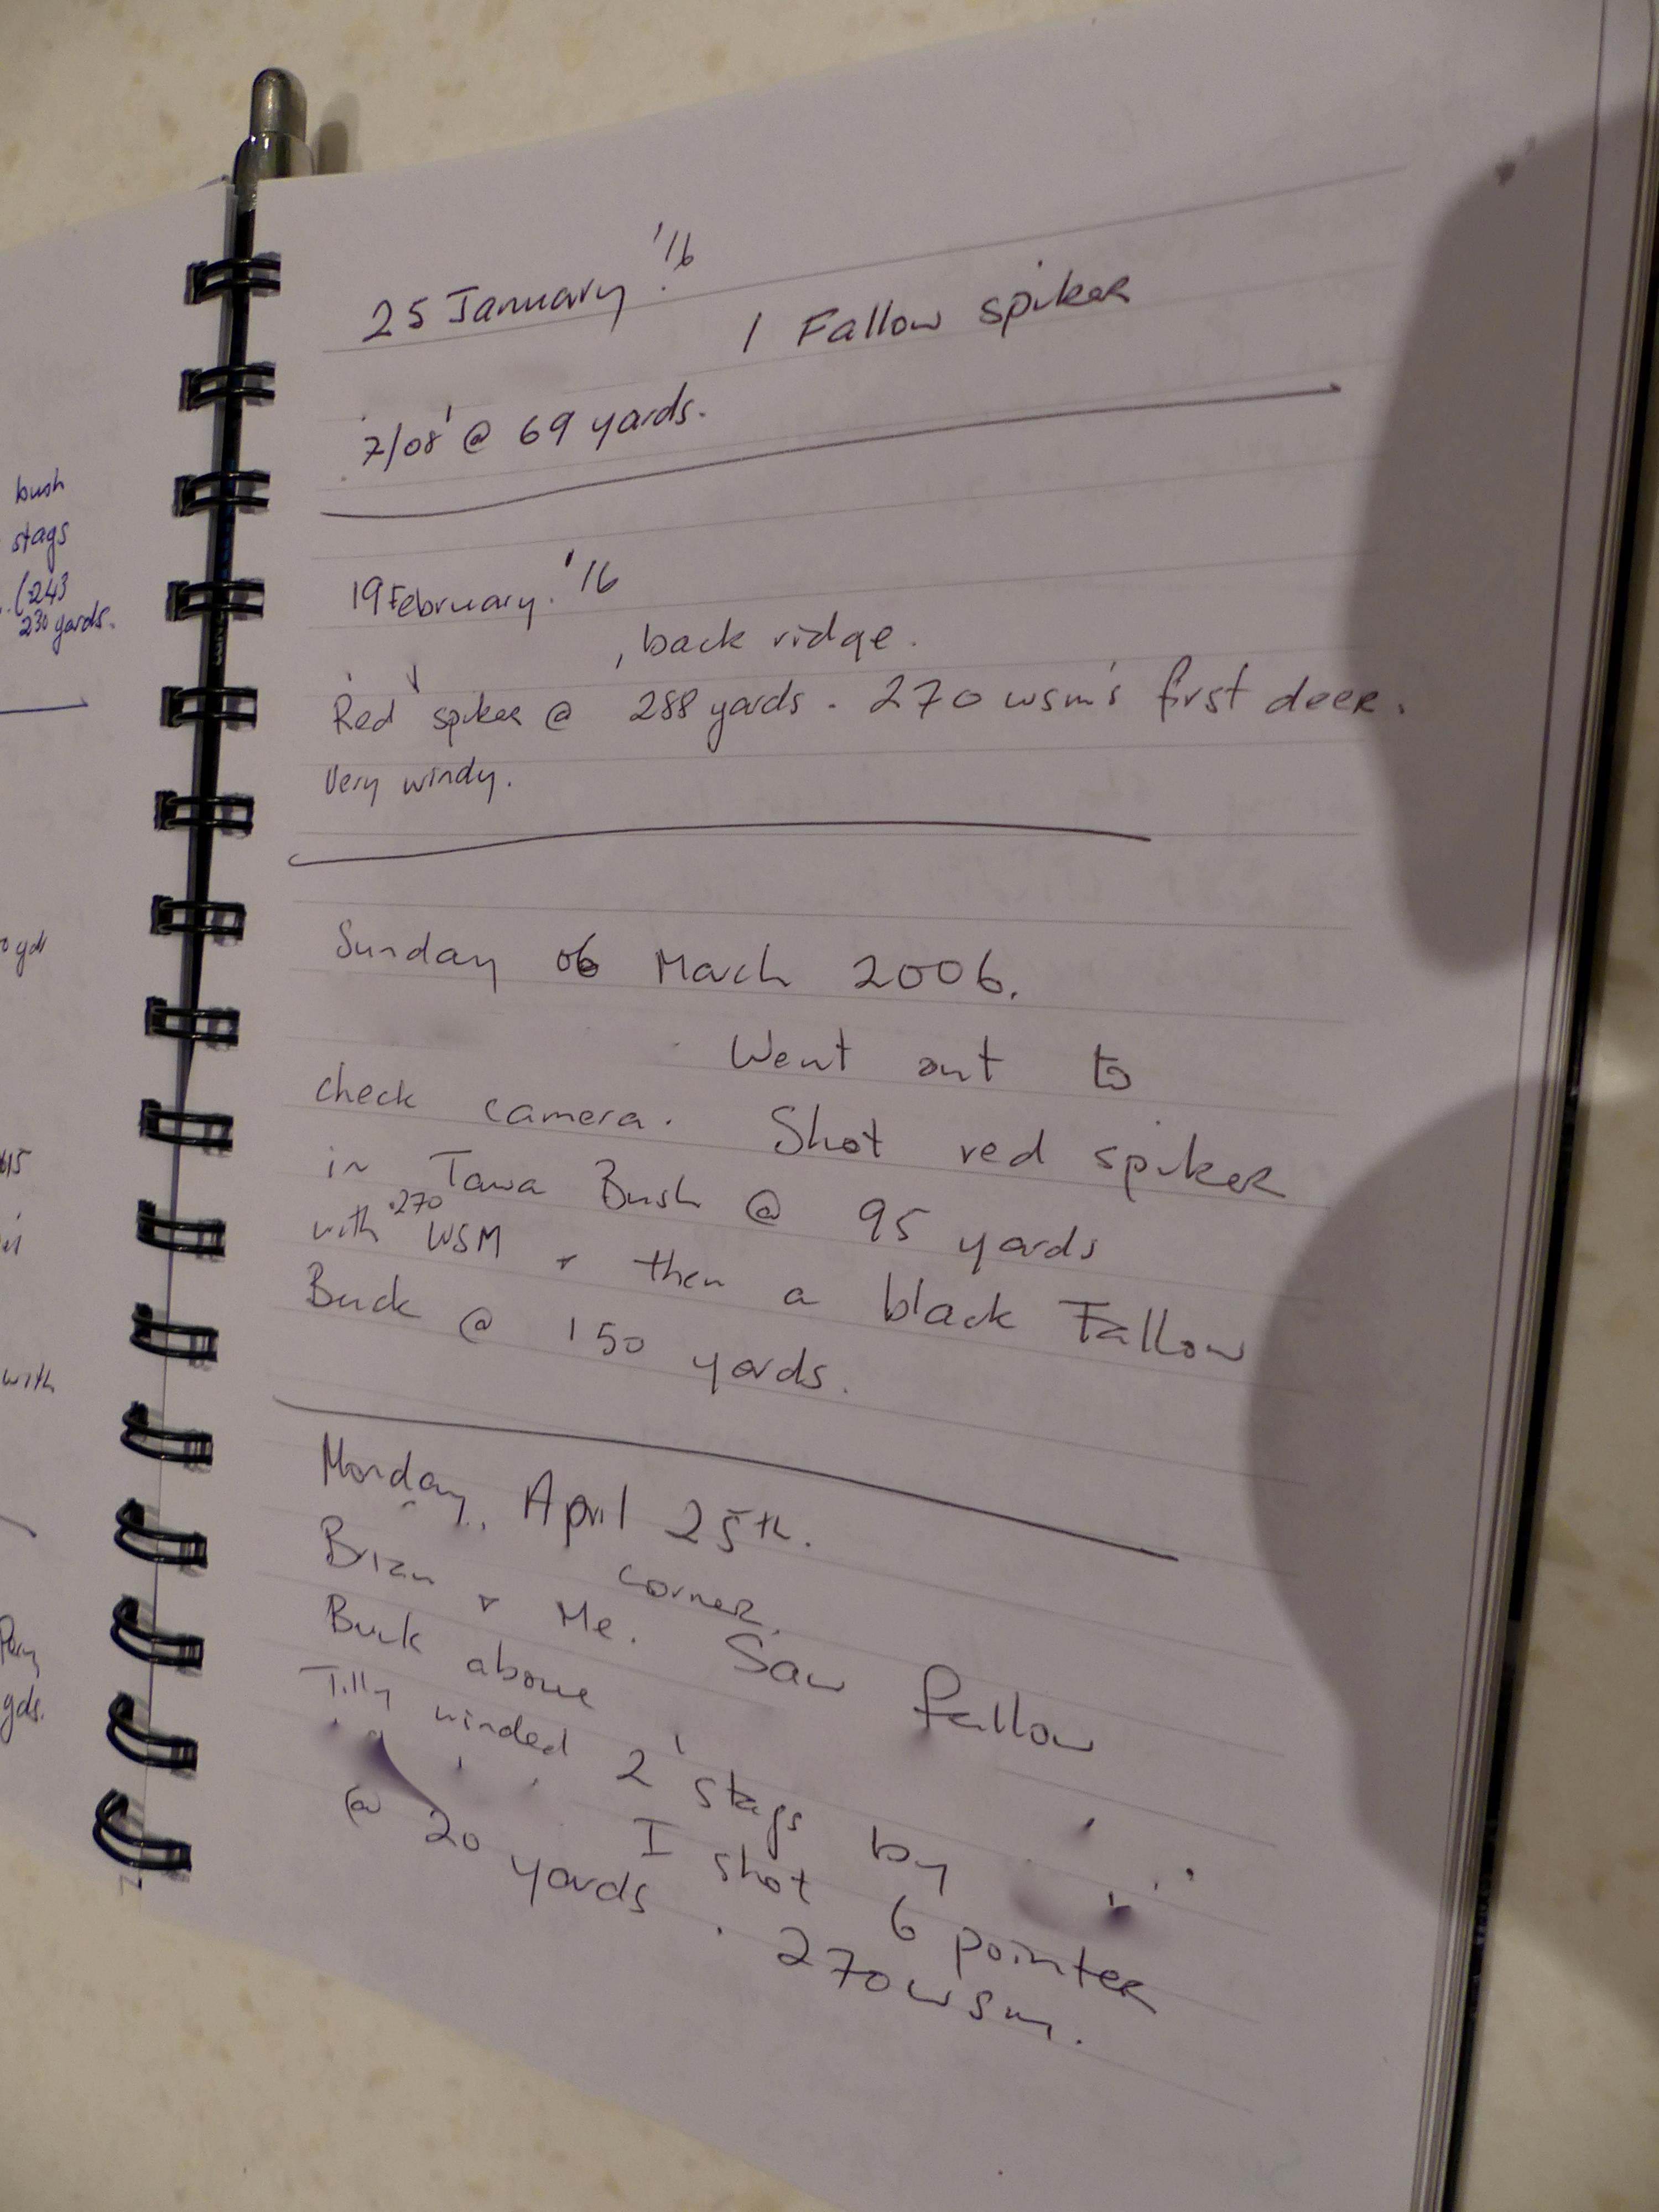 bush
stags
(243
230 yards.
with
25 January '16
1 Fallow spiker
7/08 @ 69 yards.
19 February. '16
, back ridge.
Red spiker @ 288 yards. 270 wsm's first deer.
Very windy.
Sunday 06 March 2006.
Went out to
check camera. Shot red spiker
in Tawa Bush @ 95 yards
with .270 WSM + then a black Fallow
Buck @ 150 yards.
Monday, April 25th.
corner.
Brian + Me. Saw fallow
Buck above
Tilly winded 2 stags by
I shot 6 pointer
@ 20 yards. 270 wsm.